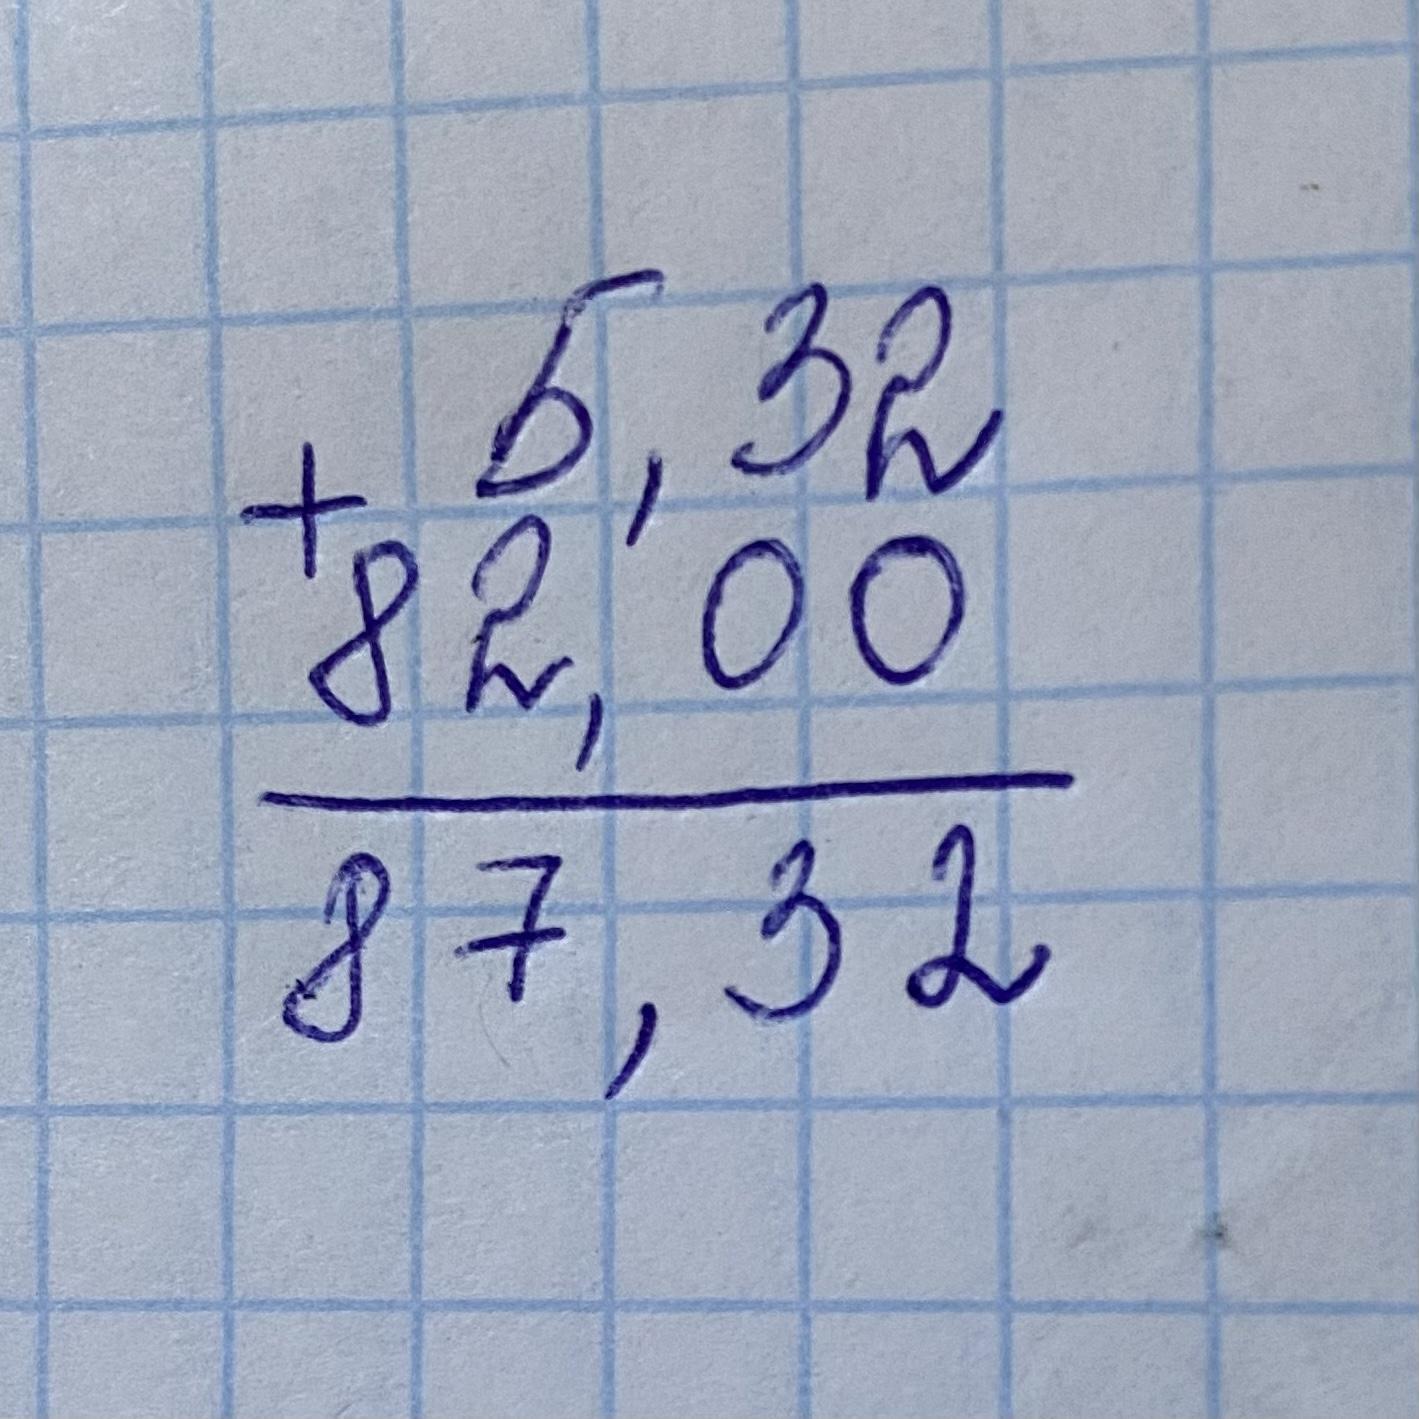 5,32
+
82,00
87,32